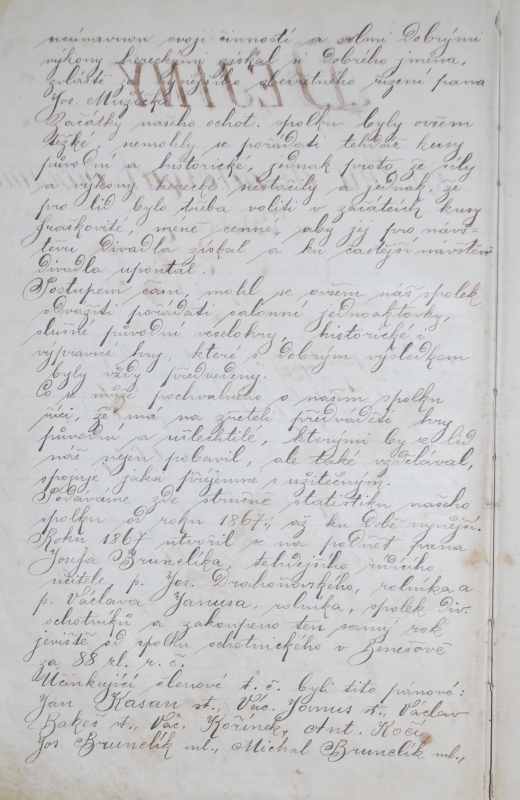 neúnavnou svojí činností a velmi dobrými
výkony hereckými získal si dobrého jména,
zvláště obezřetného řízení pana
Jos. Mužíčka.
Začátky našeho ochot. spolku byly ovšem
těžké, nemohly se pořádati tehdáž kusy
původní a historické, jednak proto, že síly
a výkony herecké nestačily a jednak, že
pro lid bylo třeba voliti v začátcích kusy
fraškovité, méně cenné, aby jej pro náv-
števu divadla získal a ku častější návštěvě
divadla upoutal.
Postupem času, mohl se ovšem náš spolek
odvážiti pořádati salonní jednoaktovky,
slušné původní veselohry, historické i
výpravné hry, které s dobrým výsledkem
byly vždy předvedeny.
Co se může pochvalného o našem spolku
říci, že má na zřeteli předváděti hry
původní a ušlechtilé, kterými by se lid
náš nejen pobavil, ale také vzdělával,
spojuje jaksi příjemné s užitečným.
Podáváme zde stručně statistiku našeho
spolku od roku 1867., až ku době nynější.
Roku 1867 utvořil se na podnět pana
Josefa Brunclíka, tehdejšího řídícího
učitele, p. Jos. Drahoňovského, rolníka a
p. Václava Janusa, rolníka, spolek div.
ochotníků a zakoupeno ten samý rok
jeviště od spolku ochotnického v Benešově
za 88 zl. r. č.
Účinkující členové t. č. byli tito pánové:
Jan Kasan st., Vác. Janus st., Václav
Bakeš st., Vác. Kořínek, Ant. Kočí,
Jos. Brunclík ml., Michal Brunclík ml.,